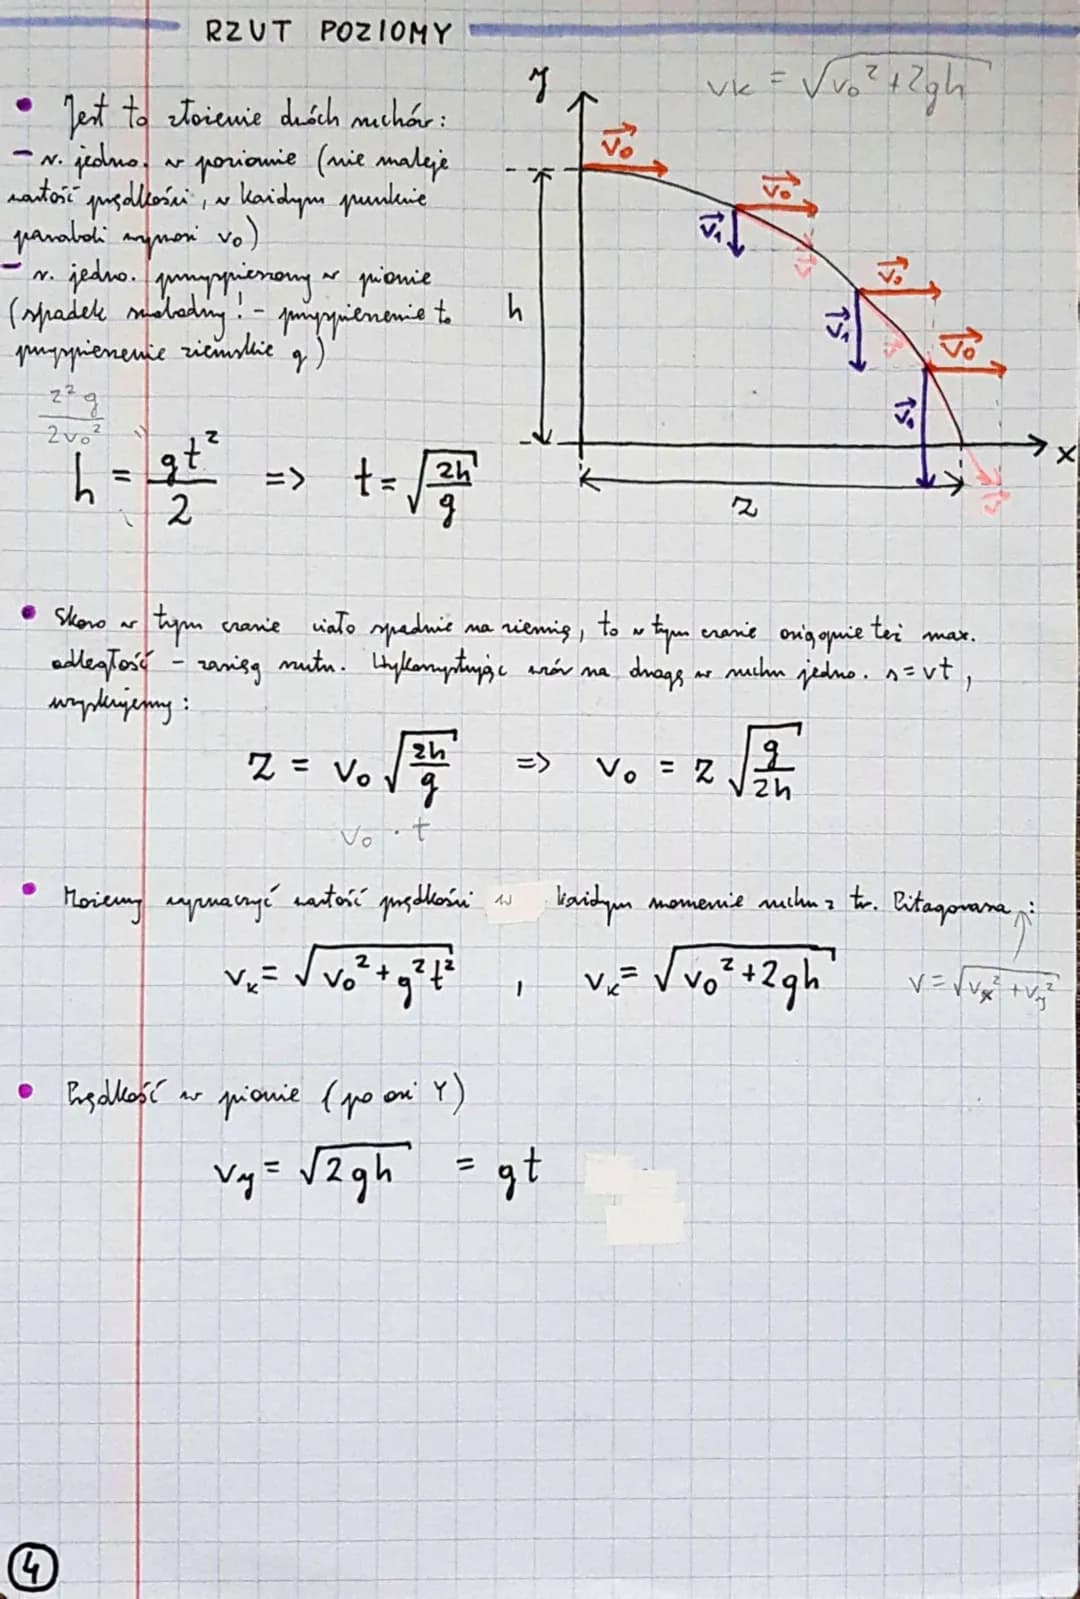 RZUT POZIOMY
• Jest to złożenie dwóch ruchów:
- r. jedno. w poziomie (nie maleje
wartość prędkości, w każdym punkcie
paraboli wynosi v₀)
- r. jedno. przyspieszony w pionie
(spadek swobodny! - przyspieszenie to
przyspieszenie ziemskie g)
z²g
2v₀²
h = gt²/2 => t = √(2h/g)
vk = √(v₀²+2gh)
y
v₀
v₀
v₁
v
v₀
v₁
v
v₀
v₁
v
h
x
z
• Skoro w tym czasie ciało spadnie na ziemię, to w tym czasie osiągnie też max.
odległość - zasięg rzutu. Wykorzystując wzór na drogę w ruchu jedno. s=vt,
uzyskujemy:
z = v₀ √(2h/g) => v₀ = z √(g/2h)
v₀ · t
• Możemy wyznaczyć wartość prędkości w każdym momencie ruchu z tw. Pitagorasa:
vₖ = √(v₀²+g²t²) , vₖ = √(v₀²+2gh) v = √(vₓ²+v_y²)
• Prędkość w pionie (po osi Y)
v_y = √(2gh) = gt
4